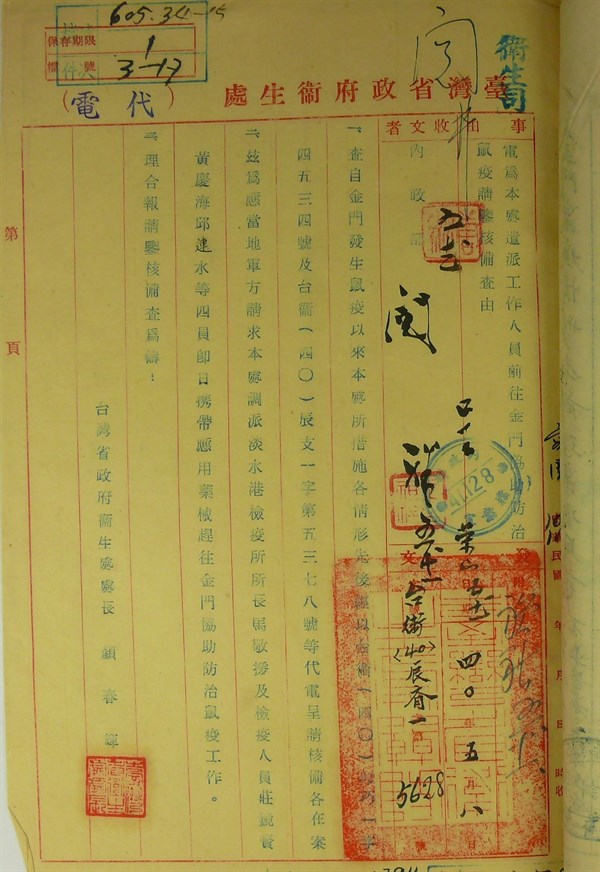 605.34-15
保存期限 1
檔號 3-17
衛生司
臺灣省政府衞生處
(代電)
事由
電為本處遣派工作人員前往金門協助防治
鼠疫請鑒核備查由
收文者
內政部
閱
一、查自金門發生鼠疫以來本處所措施各情形先後經以台衞(四〇)
四五三四號及台衞(四〇)辰文一字第五三七八號等代電呈請核備各在案
二、茲為應當地軍方請求本處調派淡水港檢疫所所長馬敬撈及檢疫人員莊
黃慶海邱建水等四員即日攜帶應用藥械趕往金門協助防治鼠疫工作。
三、理合報請鑒核備查為禱!
台灣省政府衞生處處長 顏春暉
四〇年五月八日
台衛〈40〉辰齊一
5628
第 頁
民國 年 月 日 時收